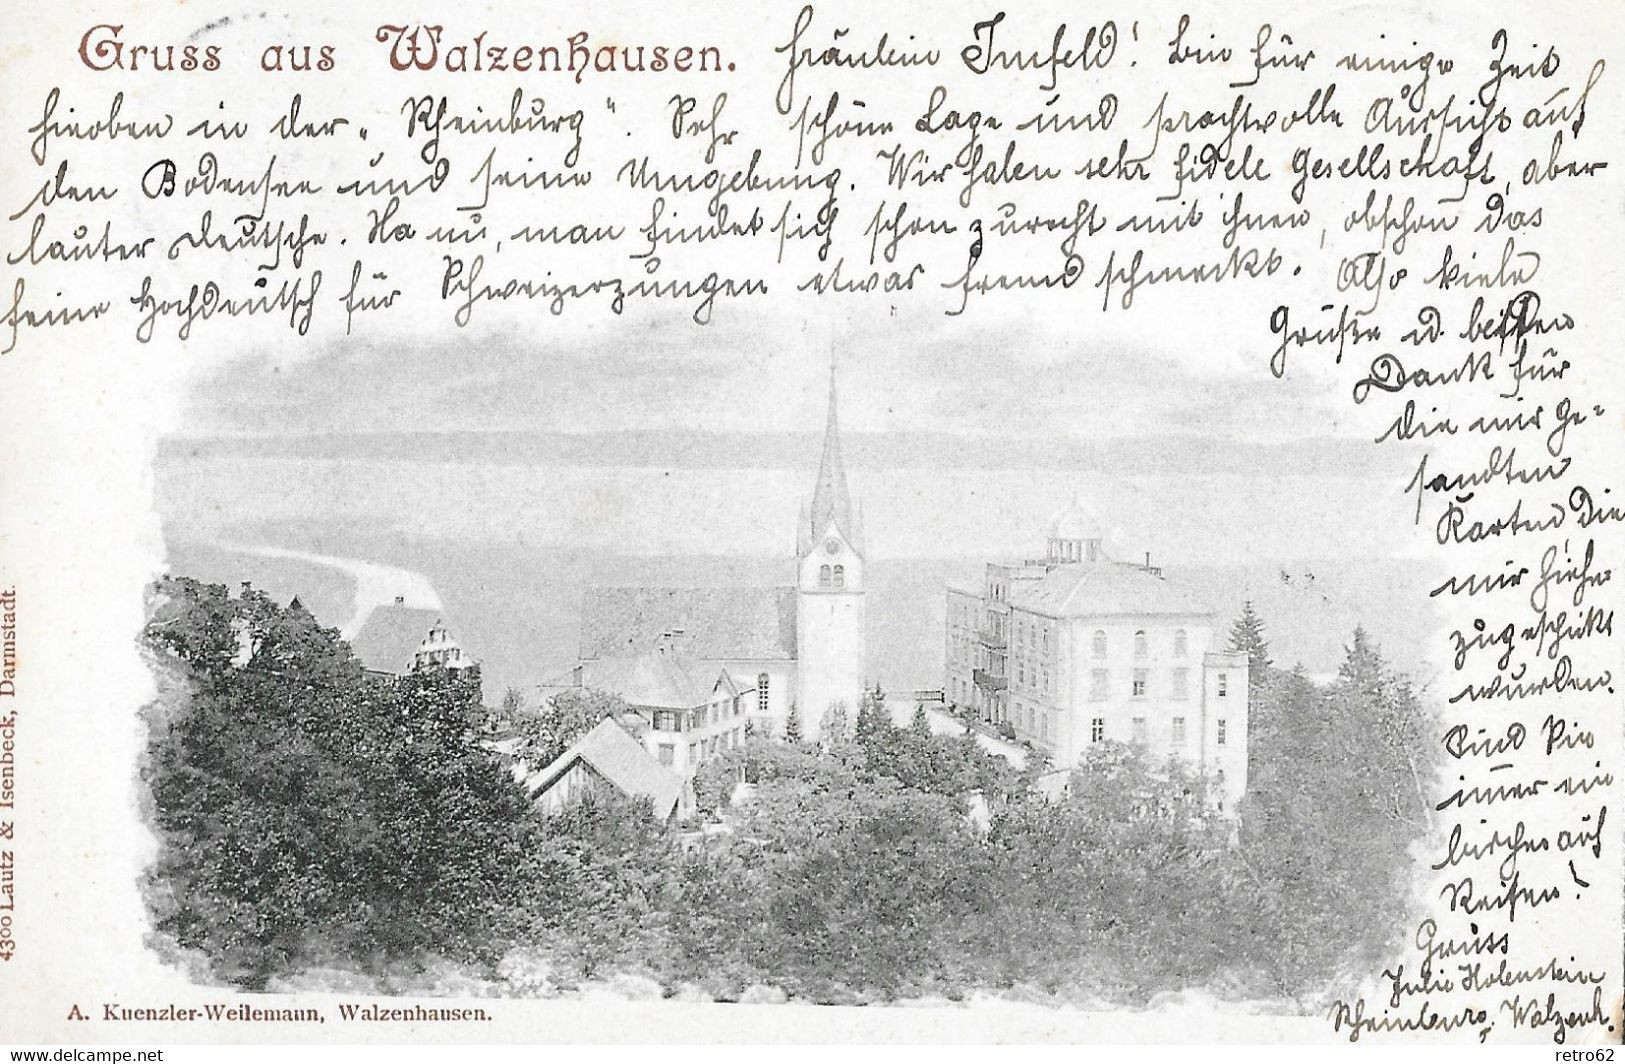 Gruss aus Walzenhausen. Fräulein Imfeld! Bin für einige Zeit
hieroben in der „Rheinburg“. Sehr schöne Lage und prachtvolle Aussicht auf
den Bodensee und seine Umgebung. Wir haben sehr fidele Gesellschaft, aber
lauter Deutsche. Na nu, man findet sich schon zurecht mit ihnen, obschon das
feine Hochdeutsch für Schweizerzungen etwas fremd schmeckt. Also viele
Grüße u. besten
Dank für
die mir ge-
sandten
Karten, die
mir hieher
zugeschickt
wurden.
Sind Sie
immer ein
auf
Reisen!
Gruss
Julie Holenstein
Rheinburg, Walzenh.
4300 Lautz & Isenbeck, Darmstadt.
A. Kuenzler-Weilemann, Walzenhausen.
delcampe.net
retro62